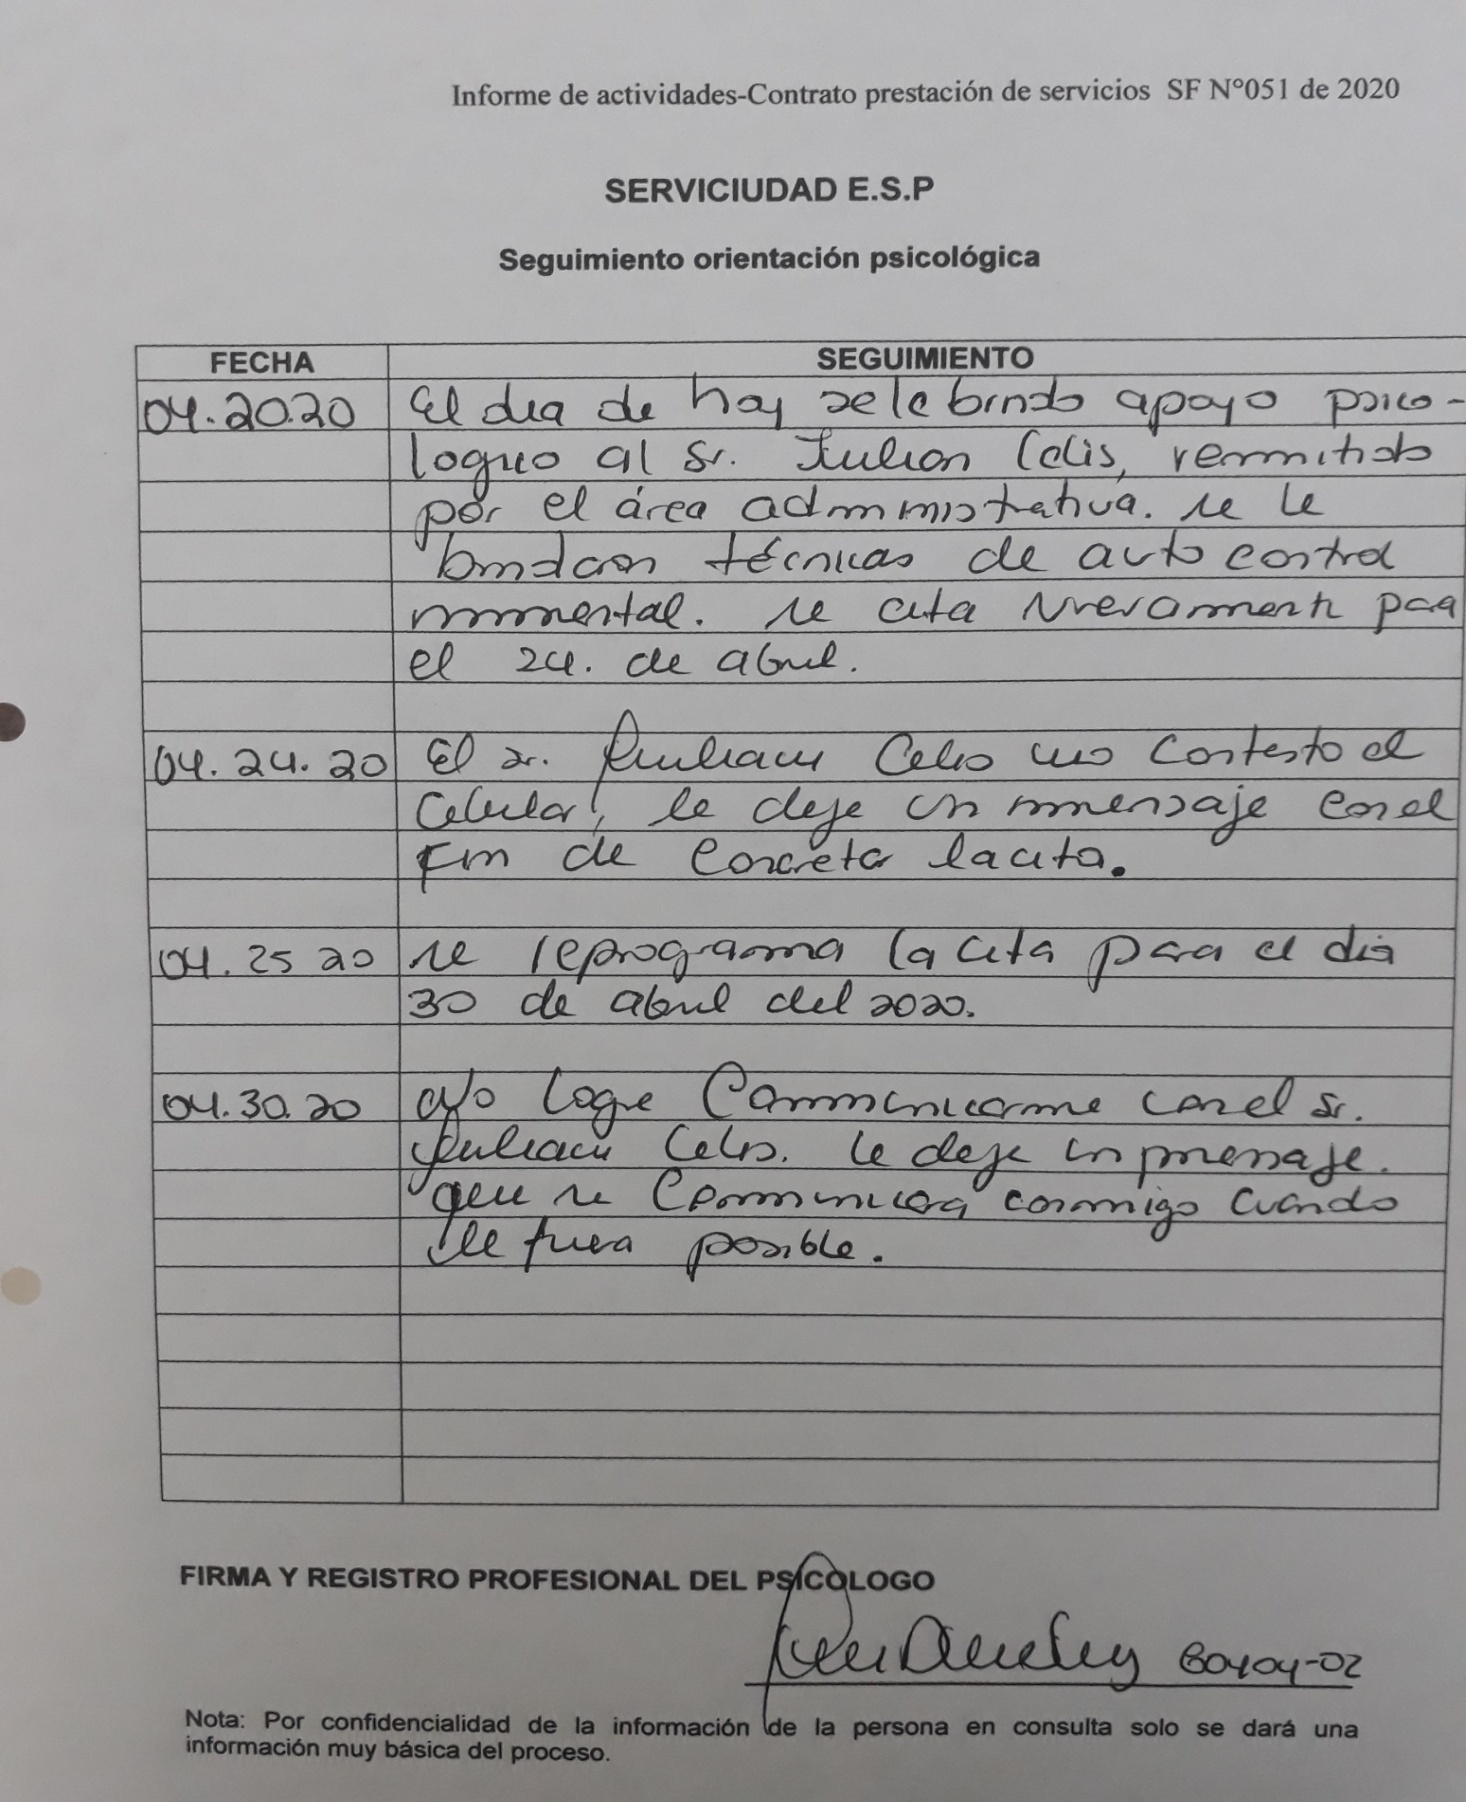 Informe de actividades-Contrato prestación de servicios SF N°051 de 2020
SERVICIUDAD E.S.P
Seguimiento orientación psicológica
FECHA SEGUIMIENTO
04.20.20 El dia de hoy se le brindo apoyo psico-
logico al Sr. Julian Celis, remitido
por el área administrativa. se le
brindaron técnicas de auto control
mental. se cita nuevamente para
el 24. de abril.
04.24.20 El sr. Julian Celis no contesto el
celular, le deje un mensaje con el
fin de concretar la cita.
04.25 20 se reprograma la cita para el dia
30 de abril del 2020.
04.30.20 No logre comunicarme con el Sr.
Julian Celis. le deje un mensaje.
que se comunicara conmigo cuando
le fuera posible.
FIRMA Y REGISTRO PROFESIONAL DEL PSICOLOGO
Nota: Por confidencialidad de la información de la persona en consulta solo se dará una
información muy básica del proceso.